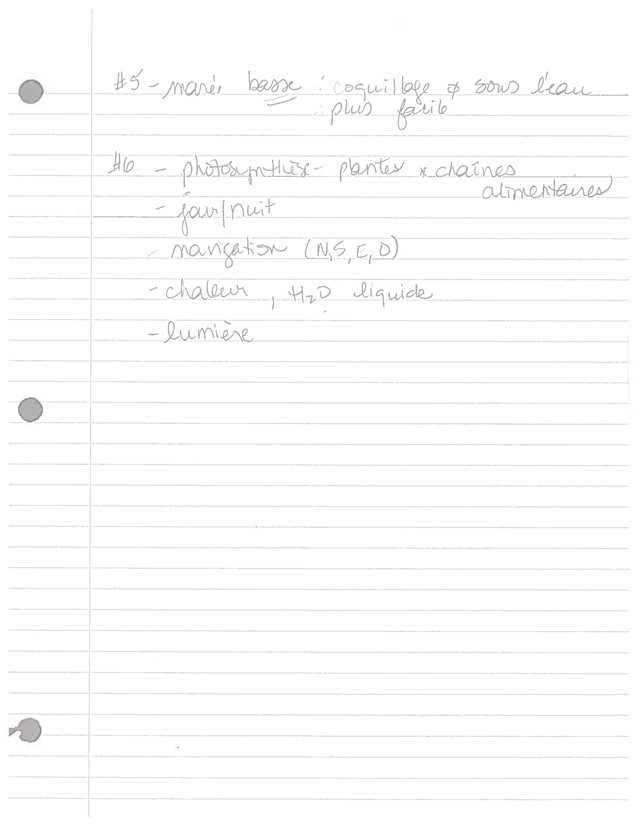 #5 - marée basse : coquillage ∅ sous l'eau
: plus facile
#6 - photosynthèse - plantes * chaînes
alimentaires
- jour/nuit
- navigation (N,S,E,O)
- chaleur, H₂O liquide
- lumière